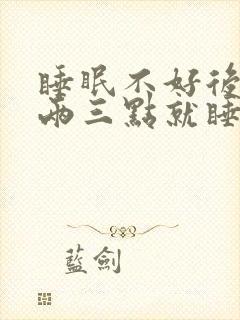 睡眠不好後
兩三點就睡
藍劍